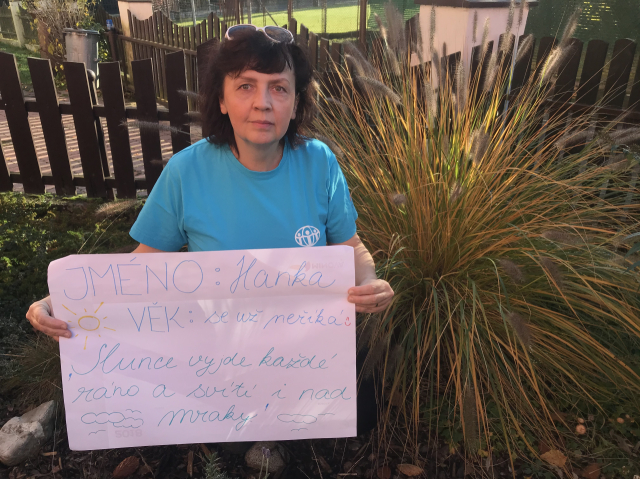 JMÉNO: Hanka
VĚK: se už neříká:
Slunce vyjde každé
ráno a svítí i nad
mraky!